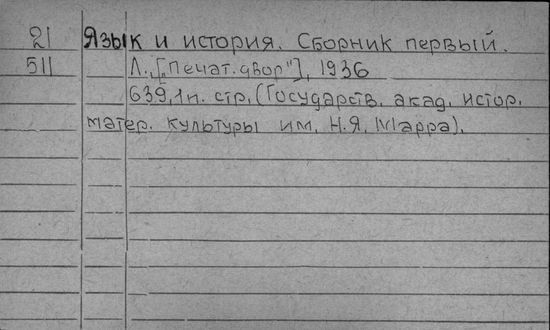 21 Язык и история. Сборник первый.
511 Л., ["Печат. двор"], 1936
639, 1 п. стр. (Государств. акад. истор.
матер. культуры им. Н.Я. Марра).